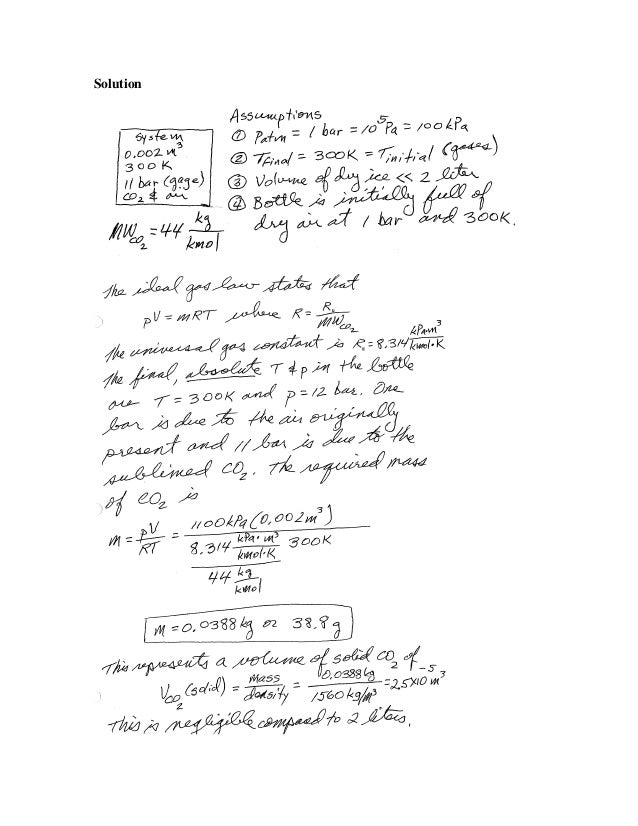 Solution
Assumptions
① Patm = 1 bar = 10⁵Pa = 100kPa
System
0.002 m³
300 K
11 bar (gage)
CO₂ & air
② Tfinal = 300K = Tinitial (gases)
③ Volume of dry ice << 2 liter
④ Bottle is initially full of
dry air at 1 bar and 300K.
MW_CO₂ = 44 kg/kmol
The ideal gas law states that
pV = mRT where R = R./MW_CO₂
The universal gas constant is R. = 8.314 kPa·m³/kmol·K
The final, absolute T & p in the bottle
are T = 300K and p = 12 bar. One
bar is due to the air originally
present and 11 bar is due to the
sublimed CO₂. The required mass
of CO₂ is
m = pV/RT = 1100kPa(0.002m³) / (8.314 kPa·m³/kmol·K 300K / 44 kg/kmol)
m = 0.0388 kg or 38.8 g
This represents a volume of solid CO₂ of
V_CO₂ (solid) = mass/density = 0.0388kg/1560 kg/m³ = 2.5x10⁻⁵ m³
This is negligible compared to 2 liters.